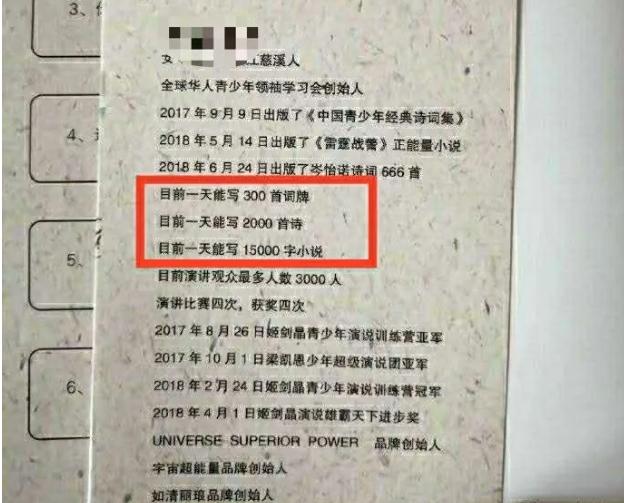 3、
4、
5、
6、
女
慈溪人
全球华人青少年领袖学习会创始人
2017 年 9 月 9 日出版了《中国青少年经典诗词集》
2018 年 5 月 14 日出版了《雷霆战警》正能量小说
2018 年 6 月 24 日出版了岑怡诺诗词 666 首
目前一天能写 300 首词牌
目前一天能写 2000 首诗
目前一天能写 15000 字小说
目前演讲观众最多人数 3000 人
演讲比赛四次，获奖四次
2017 年 8 月 26 日姬剑晶青少年演说训练营亚军
2017 年 10 月 1 日梁凯恩少年超级演说团亚军
2018 年 2 月 24 日姬剑晶青少年演说训练营冠军
2018 年 4 月 1 日姬剑晶演说雄霸天下进步奖
UNIVERSE SUPERIOR POWER 品牌创始人
宇宙超能量品牌创始人
如清丽琅品牌创始人